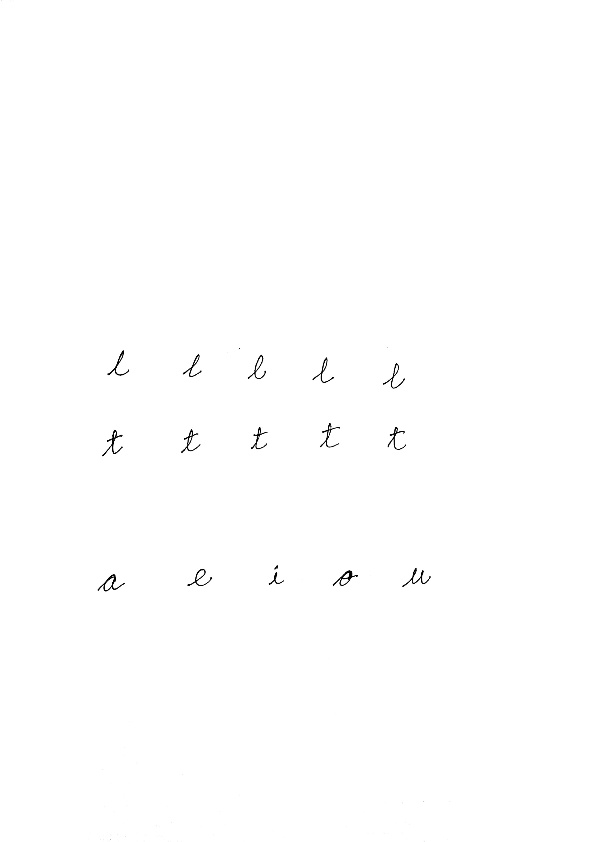 l l l l l
t t t t t
a e i o u